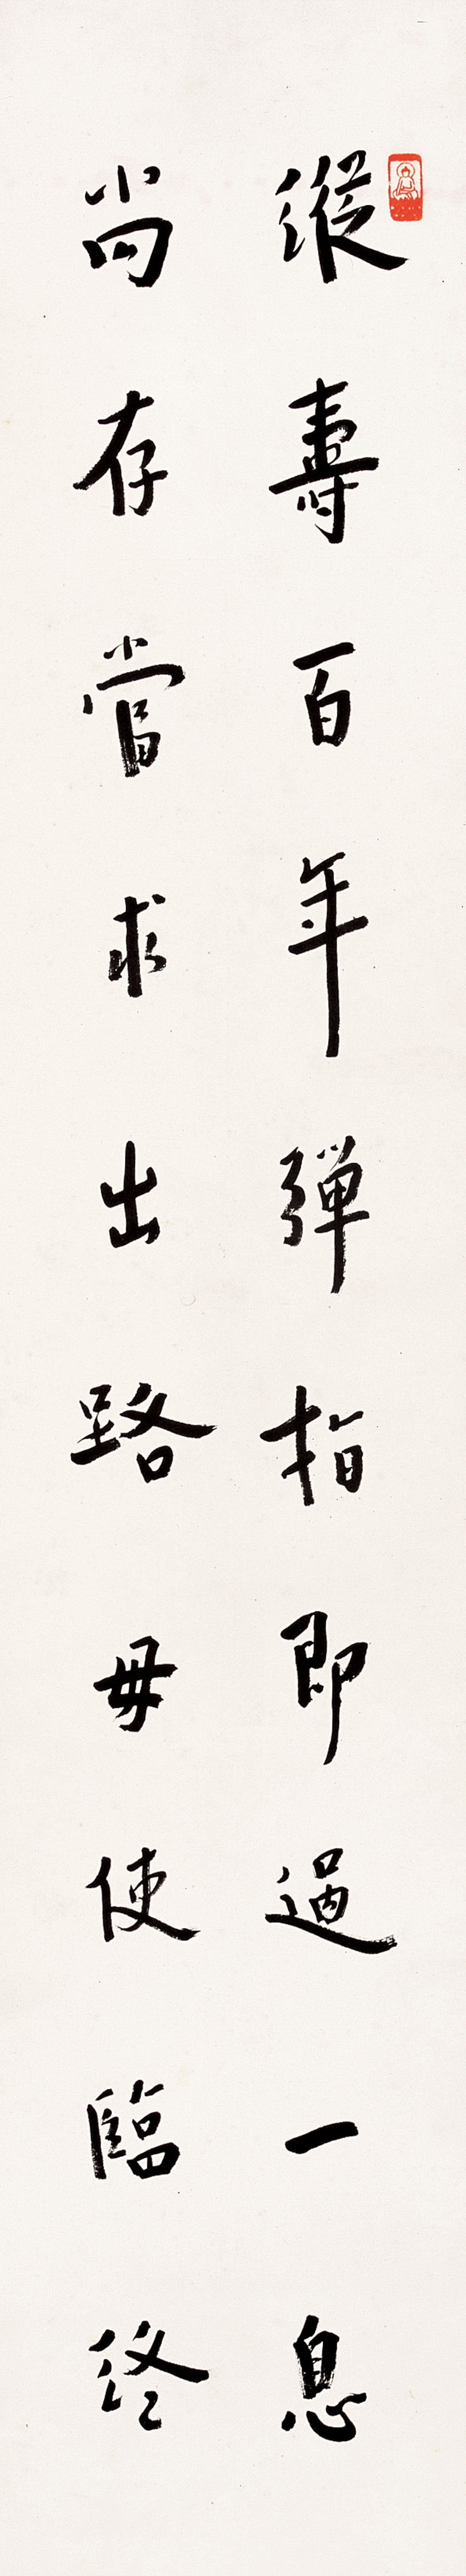 縱壽百年彈指即過一息
尚存當求出路毋使臨終